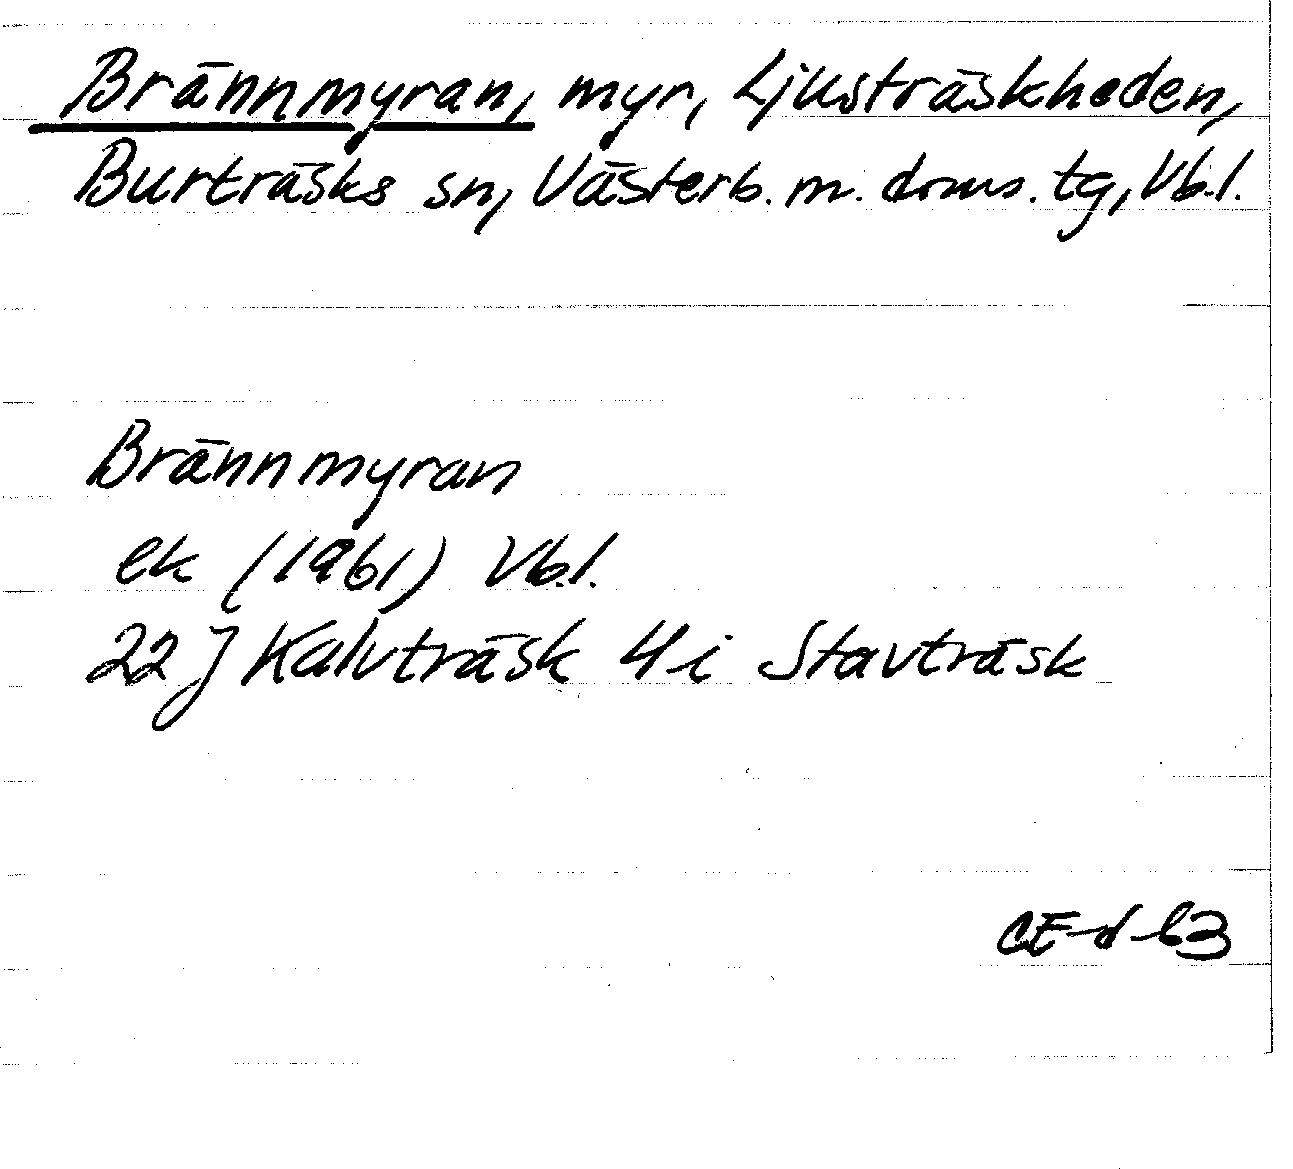 Brännmyran, myr, Ljusträskheden,
Burträsks sn, Västerb. m. doms. tg, Vb.l.
Brännmyran
ek (1961) Vb.l.
22 J Kalvträsk 4i Stavträsk
CE-d-63